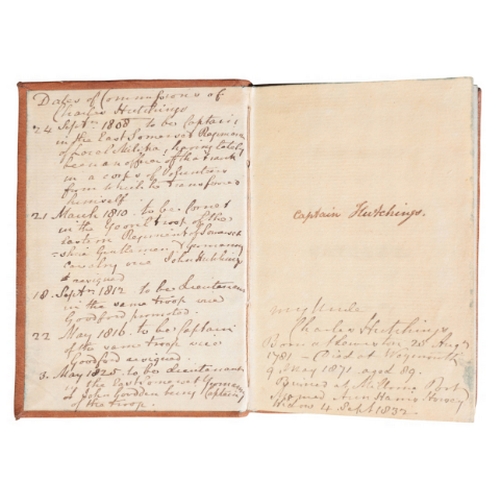 Dates of Commissions of
Charles Hutchings
24 Septr 1808 to be Captain
in the East Somerset Regiment
of Local Militia, having lately
been an officer of that rank
in a corps of Volunteers
from which he transferred
himself
21 March 1810 to be Cornet
in the troop of the
Eastern Regiment of Somerset
=shire Gentlemen & Yeomanry
Cavalry vice John Hutchings
resigned
18. Septr 1812 to be Lieutenant
in the same troop vice
Goodford promoted.
22 May 1816 to be Captain
of the same troop vice
Goodford resigned.
3. May 1825 to be Lieutenant
the East Somerset Yeomanry
John Goodden being Captain
of the troop.
Captain Hutchings.
my Uncle
Charles Hutchings
Born at 28 Augt
1781 – Died at Weymouth
9. May 1871 aged 89.
Buried at Milborne Port
Married Ann Harvey
4 Sept 1832.